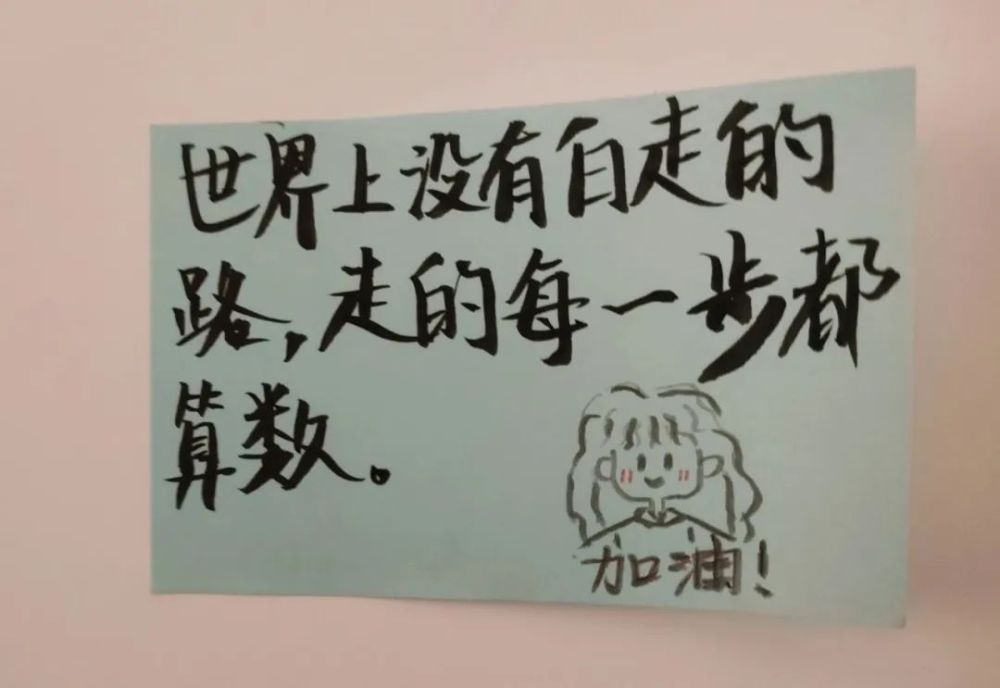 世界上没有自走的
路,走的每一步都
算数。
加油!